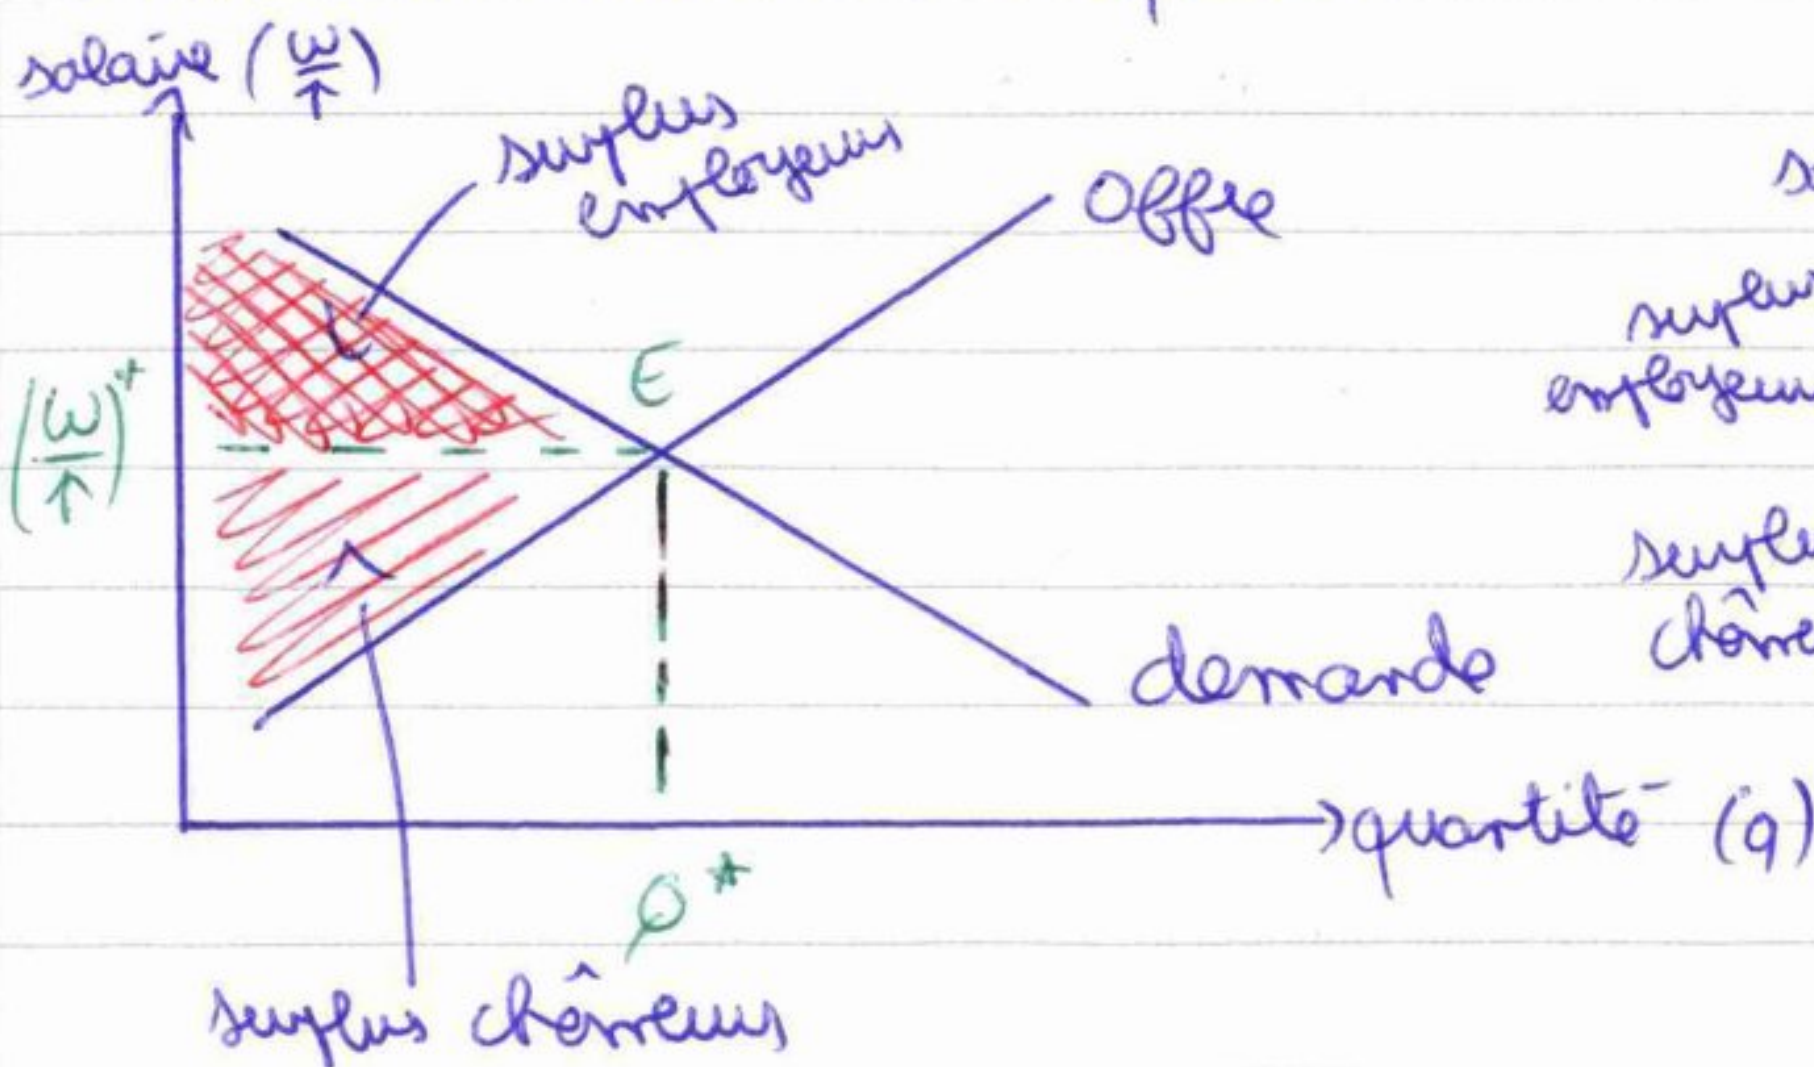 salaire (w/↑)
surplus
employeurs
Offre
E
(w/↑)*
demande
quantité (q)
Q*
surplus chômeurs
surplus
employeur